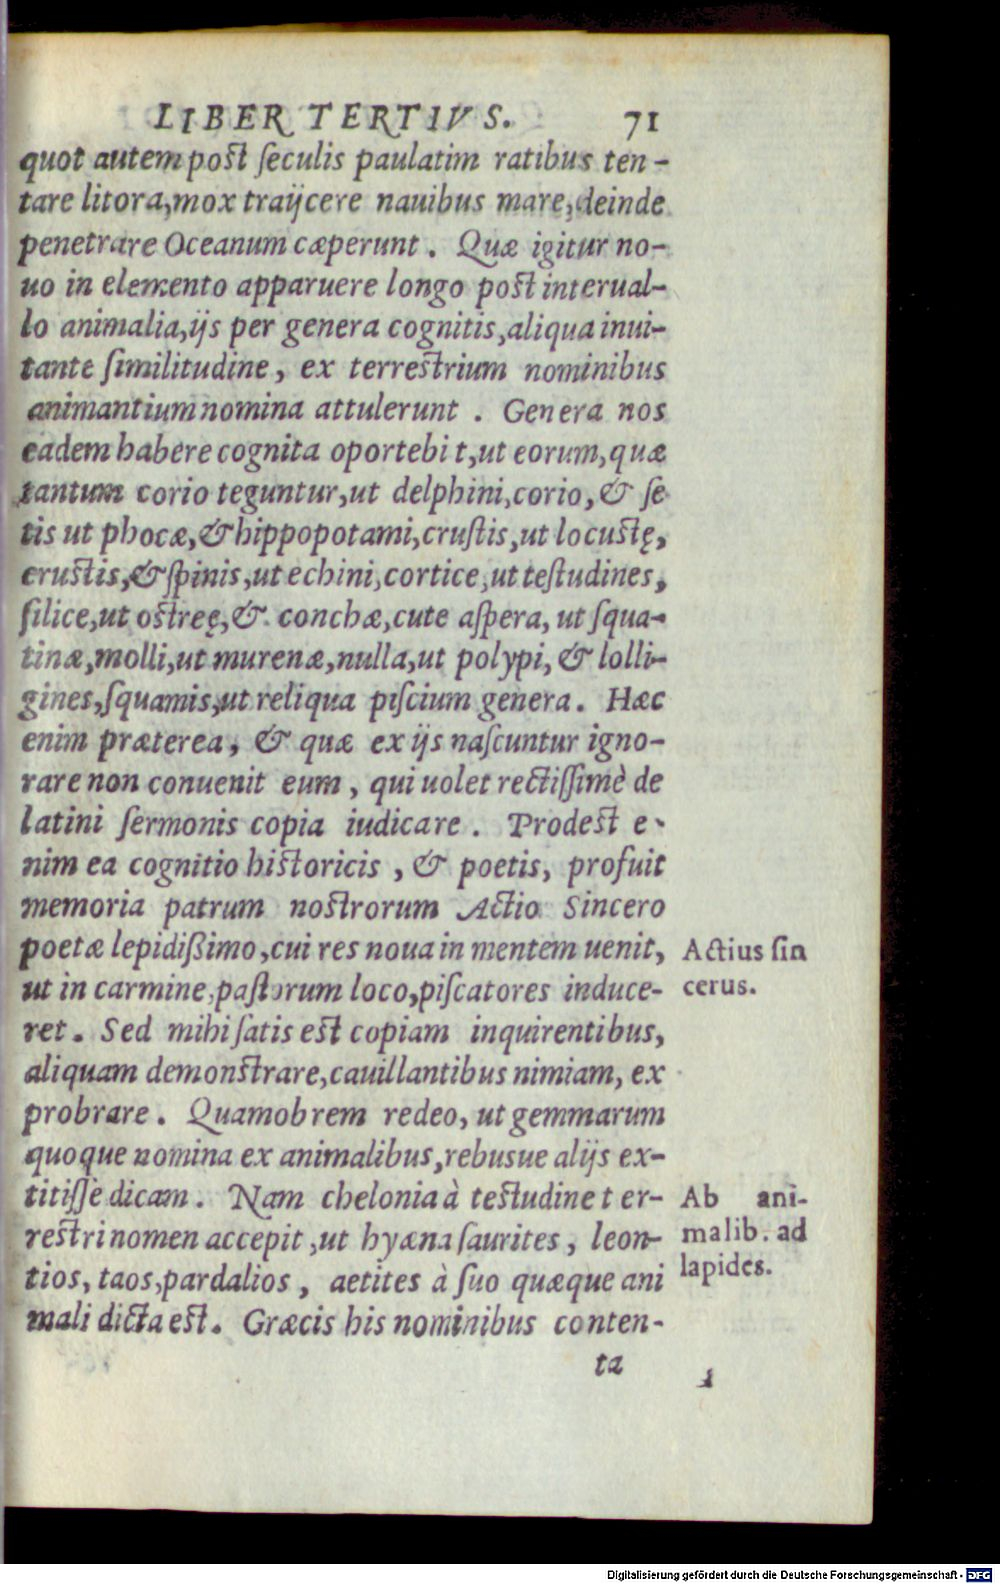 LIBER TERTIVS. 71
quot autem post seculis paulatim ratibus ten-
tare litora, mox traijcere nauibus mare, deinde
penetrare Oceanum cæperunt. Quæ igitur no-
uo in elemento apparuere longo post interual-
lo animalia, ijs per genera cognitis, aliqua inui-
tante similitudine, ex terrestrium nominibus
animantium nomina attulerunt. Genera nos
eadem habere cognita oportebit, ut eorum, quæ
tantum corio teguntur, ut delphini, corio, & se
tis ut phocæ, & hippopotami, crustis, ut locustę,
crustis, & spinis, ut echini, cortice, ut testudines,
silice, ut ostreę, & conchæ, cute aspera, ut squa-
tinæ, molli, ut murenæ, nulla, ut polypi, & lolli-
gines, squamis, ut reliqua piscium genera. Hæc
enim præterea, & quæ ex ijs nascuntur igno-
rare non conuenit eum, qui uolet rectissimè de
latini sermonis copia iudicare. Prodest e-
nim ea cognitio historicis, & poetis, profuit
memoria patrum nostrorum Actio Sincero
poetæ lepidißimo, cui res noua in mentem uenit,
ut in carmine, pastorum loco, piscatores induce-
ret. Sed mihi satis est copiam inquirentibus,
aliquam demonstrare, cauillantibus nimiam, ex
probrare. Quamobrem redeo, ut gemmarum
quoque nomina ex animalibus, rebusue alijs ex-
titisse dicam. Nam chelonia à testudine ter-
restri nomen accepit, ut hyæna saurites, leon-
tios, taos, pardalios, aetites à suo quæque ani
mali dicta est. Græcis his nominibus conten-
ta
Actius sin
cerus.
Ab ani-
malib. ad
lapides.
Digitalisierung gefördert durch die Deutsche Forschungsgemeinschaft - DFG